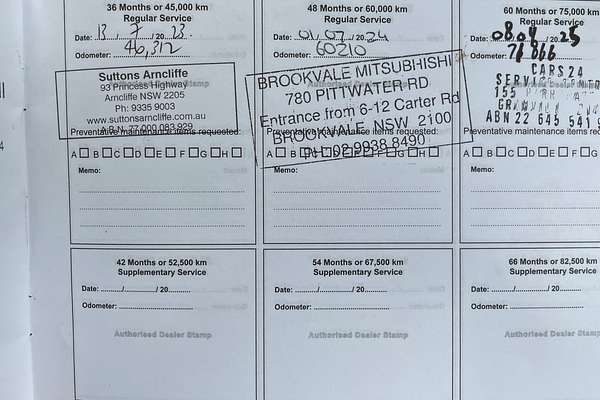 36 Months or 45,000 km
Regular Service
Date: 13 / 7 / 2023
Odometer: 46,312
Suttons Arncliffe
93 Princess Highway
Arncliffe NSW 2205
Ph: 9335 9003
www.suttonsarncliffe.com.au
A.B.N. 77 000 083 929
Authorised Dealer Stamp
Preventative maintenance items requested:
A B C D E F G H
Memo:
48 Months or 60,000 km
Regular Service
Date: 01/07/2024
Odometer: 60210
BROOKVALE MITSUBHISHI
780 PITTWATER RD
Entrance from 6-12 Carter Rd
BROOKVALE, NSW 2100
PH: 02 9938 8490
Preventative maintenance items requested:
A B C D E F G H
Memo:
60 Months or 75,000 km
Regular Service
Date: 08 04 25
Odometer: 71866
CARS24
155
ABN 22 645 541
Preventative maintenance items req
A B C D E F G
Memo:
42 Months or 52,500 km
Supplementary Service
Date: ....../....../20......
Odometer: ......
Authorised Dealer Stamp
54 Months or 67,500 km
Supplementary Service
Date: ....../....../20......
Odometer: ......
Authorised Dealer Stamp
66 Months or 82,500
Supplementary Service
Date: ....../....../20......
Odometer: ......
Authorised Dealer Stamp